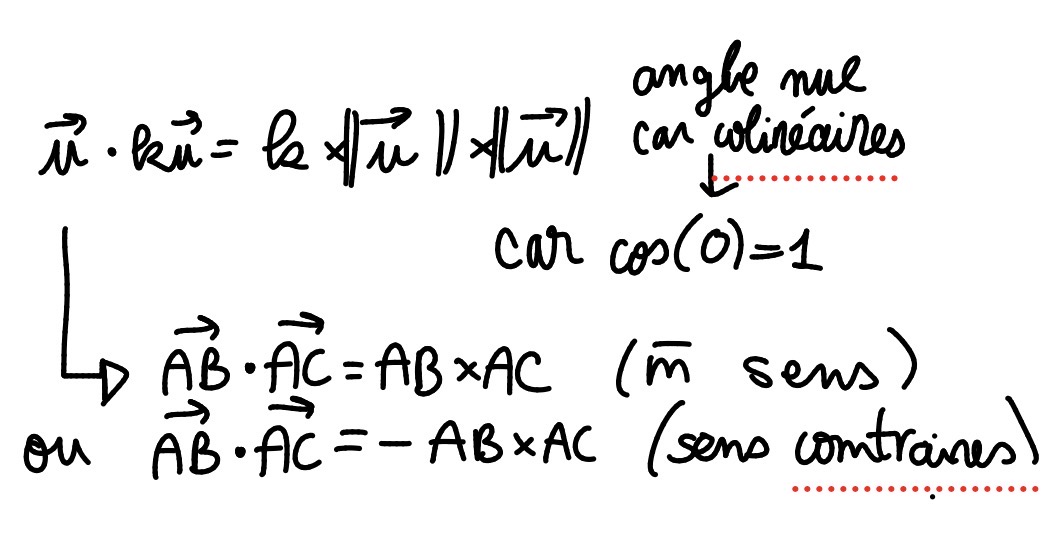 angle nul
car colinéaires
u⃗ · ku⃗ = k × ||u⃗|| × ||u⃗||
car cos(0) = 1
AB⃗ · AC⃗ = AB × AC (m̅ sens)
ou AB⃗ · AC⃗ = − AB × AC (sens contraires)